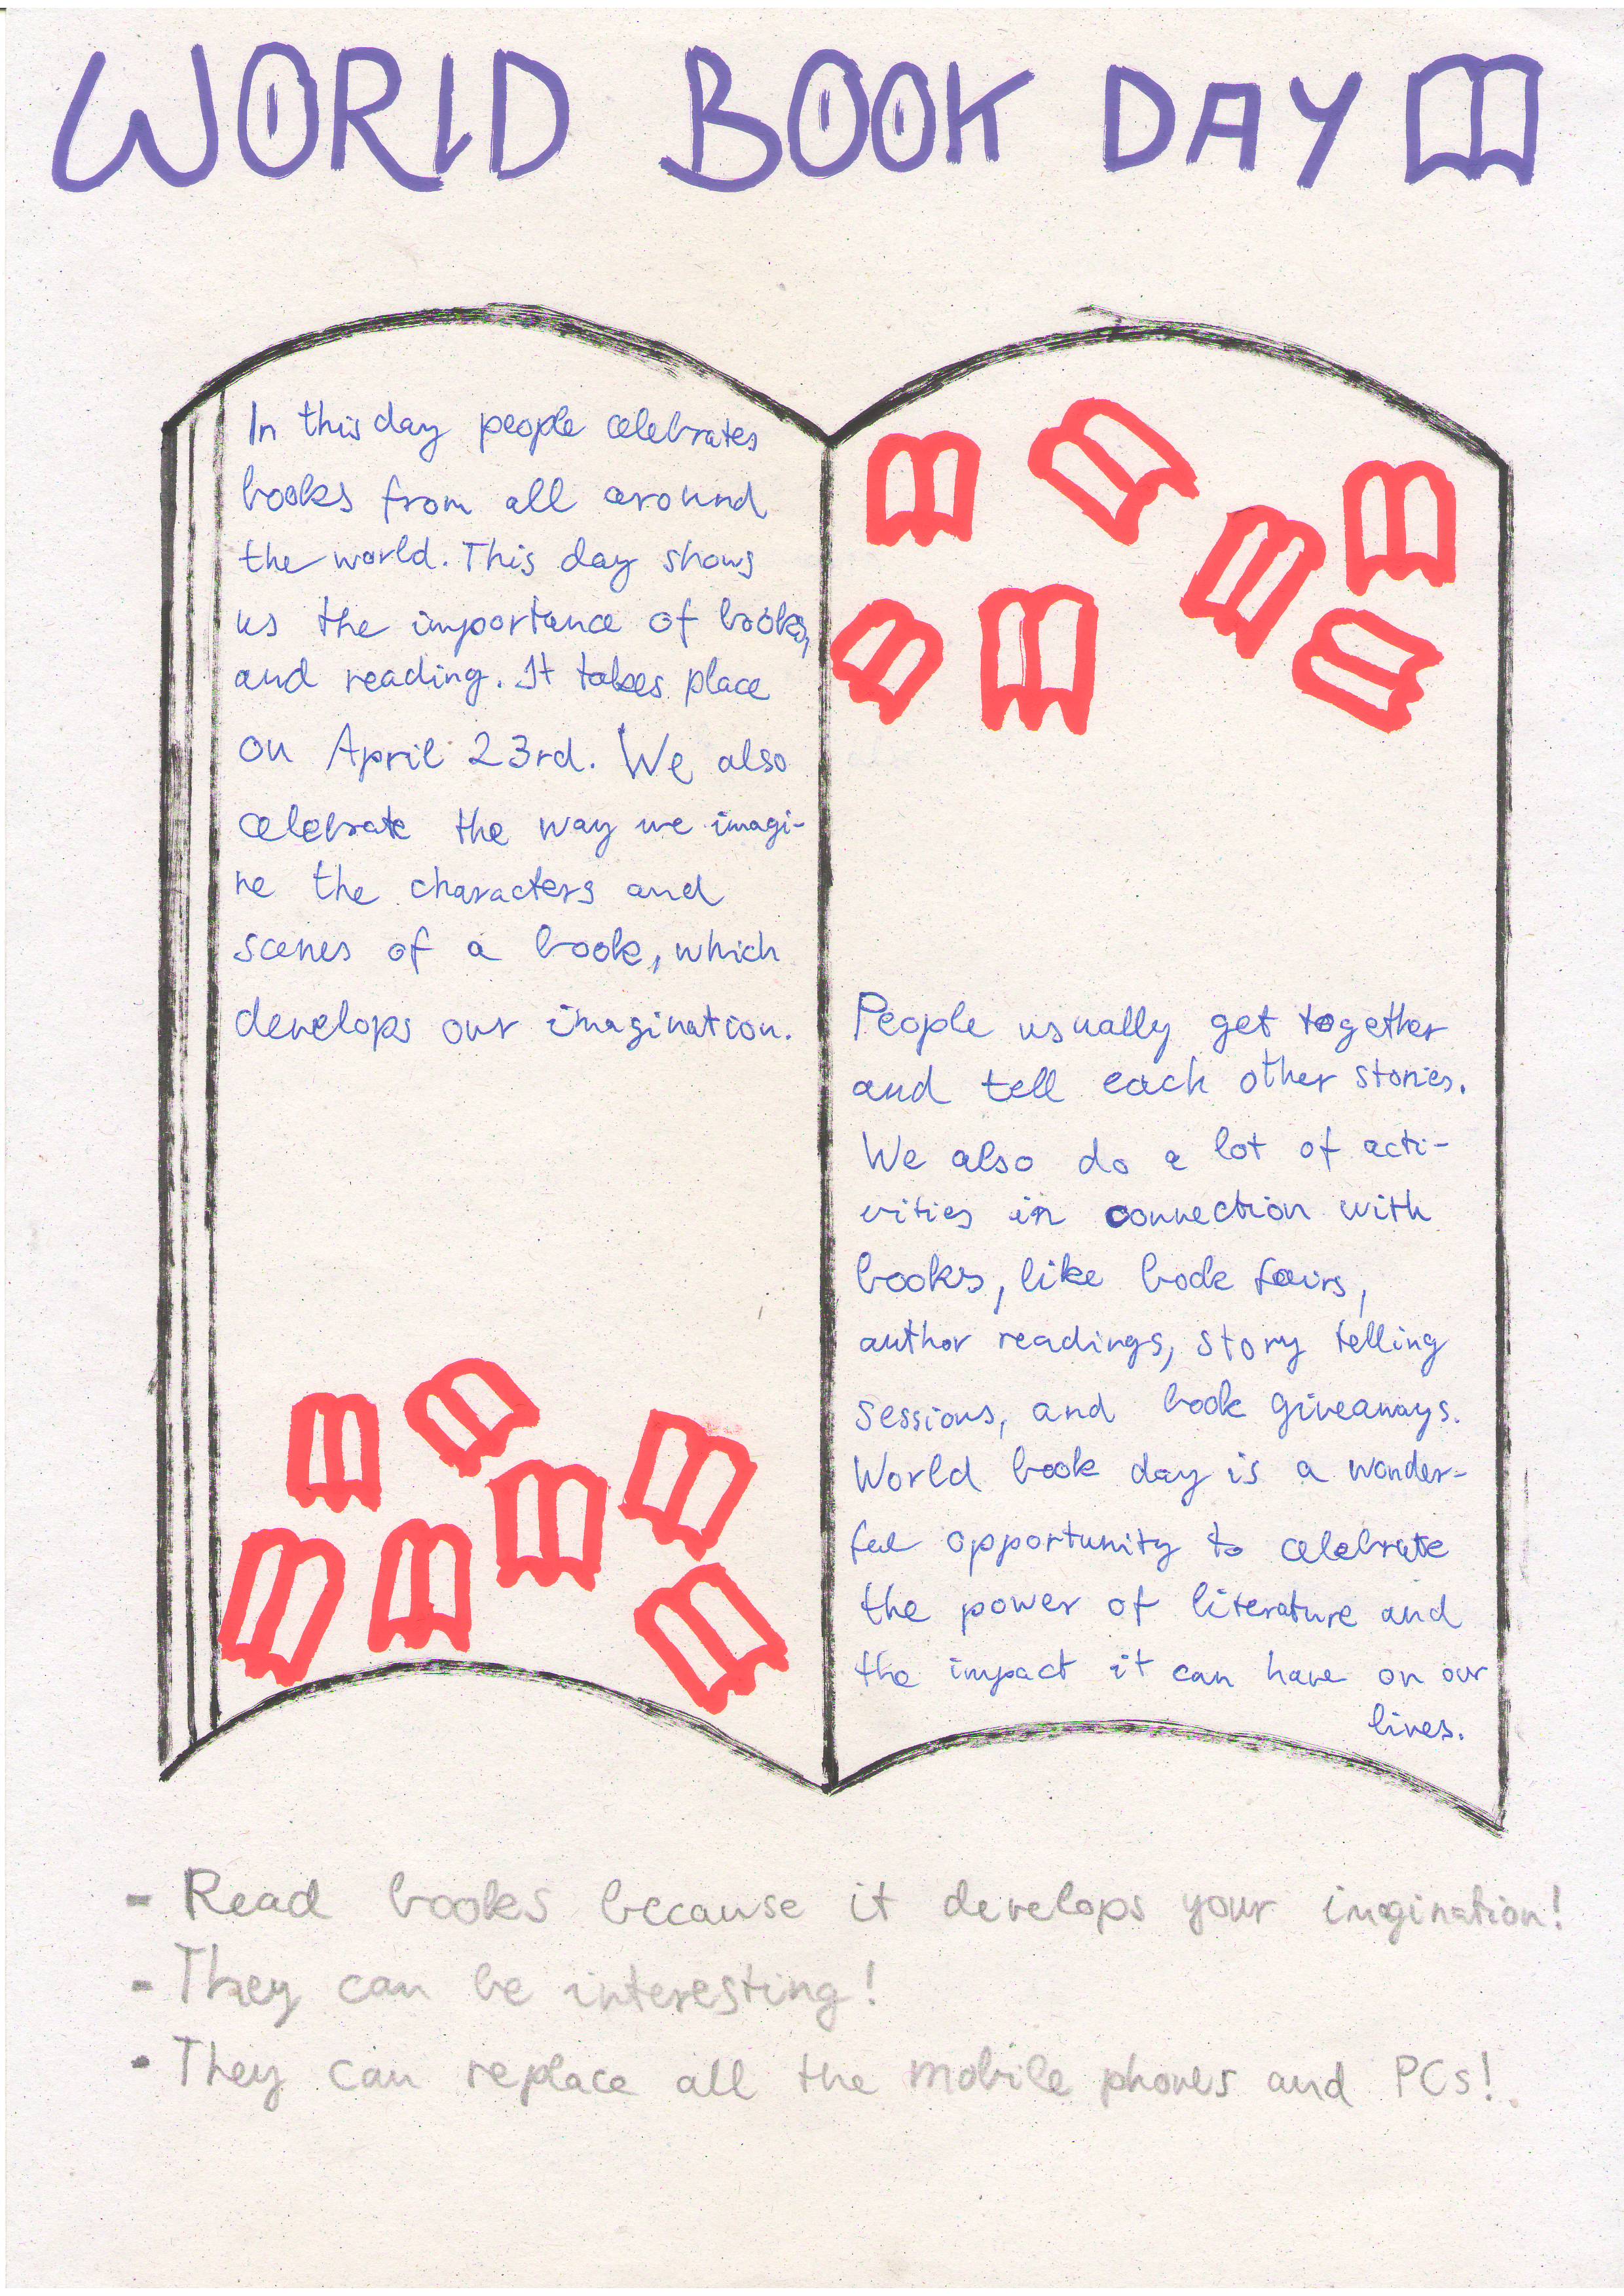 WORLD BOOK DAY
In this day people celebrates
books from all around
the world. This day shows
us the importance of books,
and reading. It takes place
on April 23rd. We also
celebrate the way we imagi-
ne the characters and
scenes of a book, which
develops our imagination.
People usually get together
and tell each other stories.
We also do a lot of acti-
vities in connection with
books, like book fairs,
author readings, story telling
sessions, and book giveaways.
World book day is a wonder-
ful opportunity to celebrate
the power of literature and
the impact it can have on our
lives.
- Read books because it develops your imagination!
- They can be interesting!
- They can replace all the mobile phones and PCs!